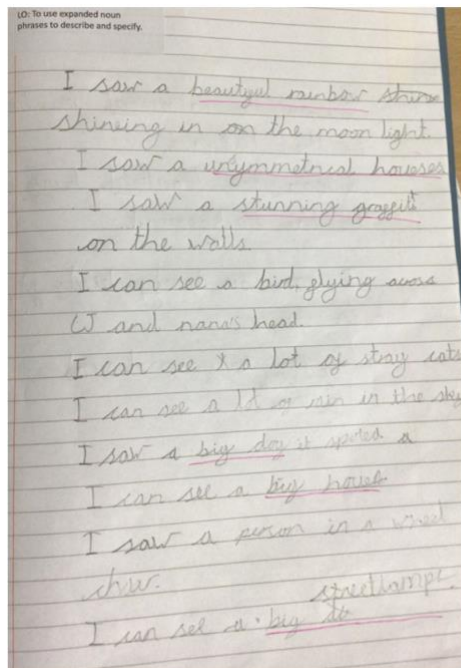 LO: To use expanded noun
phrases to describe and specify.
I saw a beautyul rainbow shine
shineing in on the moon light.
I saw a unsymmetrical houeses
I saw a stunning graffiti
on the walls
I can see a bird, flying across
CJ and nana's head.
I can see a lot of stray cats
I can see a lot of rain in the sky
I saw a big dog it spoted a
I can see a big houes
I saw a person in a wheel
chir.
streetlamps
I can see a big